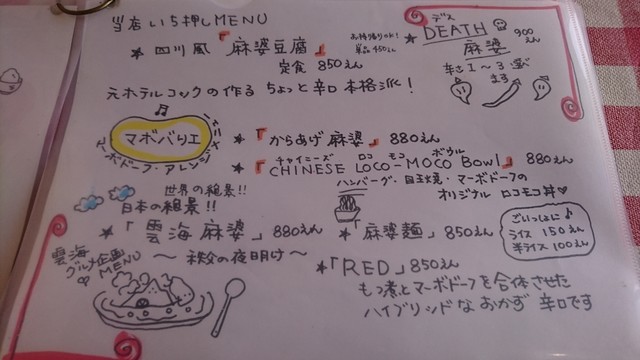 当店いち押しMENU
★四川風『麻婆豆腐』
定食 850えん
お持ち帰りOK!
単品 450えん
元ホテルコックの作る ちょっと辛口 本格派!
★デス
DEATH
麻婆
900えん
辛さ1~3選べ
ます
マボバリエ
マーボドーフ・アレンジ
★『からあげ麻婆』880えん
チャイニーズ ロコモコ ボウル
★『CHINESE LOCO-MOCO Bowl』880えん
ハンバーグ・目玉焼・マーボドーフの
オリジナル ロコモコ丼
世界の絶景!!
日本の絶景!!
★「雲海麻婆」880えん
~秩父の夜明け~
雲海
グルメ企画
MENU
★『麻婆麺』850えん
ごいっしょに♪
ライス 150えん
半ライス 100えん
★「RED」850えん
もつ煮とマーボドーフを合体させた
ハイブリッドなおかず 辛口です